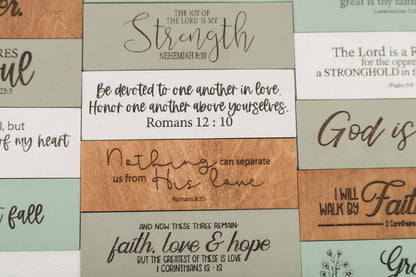 er.
RES
oul
23:3
l, but
of my heart
t fall
THE JOY OF
THE LORD IS MY
Strength
NEHEMIAH 8:10
Be devoted to one another in love.
Honor one another above yourselves.
Romans 12 : 10
Nothing can separate
us from His love
Romans 8:35
AND NOW THESE THREE REMAIN:
faith, love & hope
BUT THE GREATEST OF THESE IS LOVE
1 CORINTHIANS 13 : 13
great is thy faith
The Lord is a R
for the oppre
a STRONGHOLD in t
-Psalm 9:9
God is
I WILL
WALK BY Faith
2 Corinthians
Gr